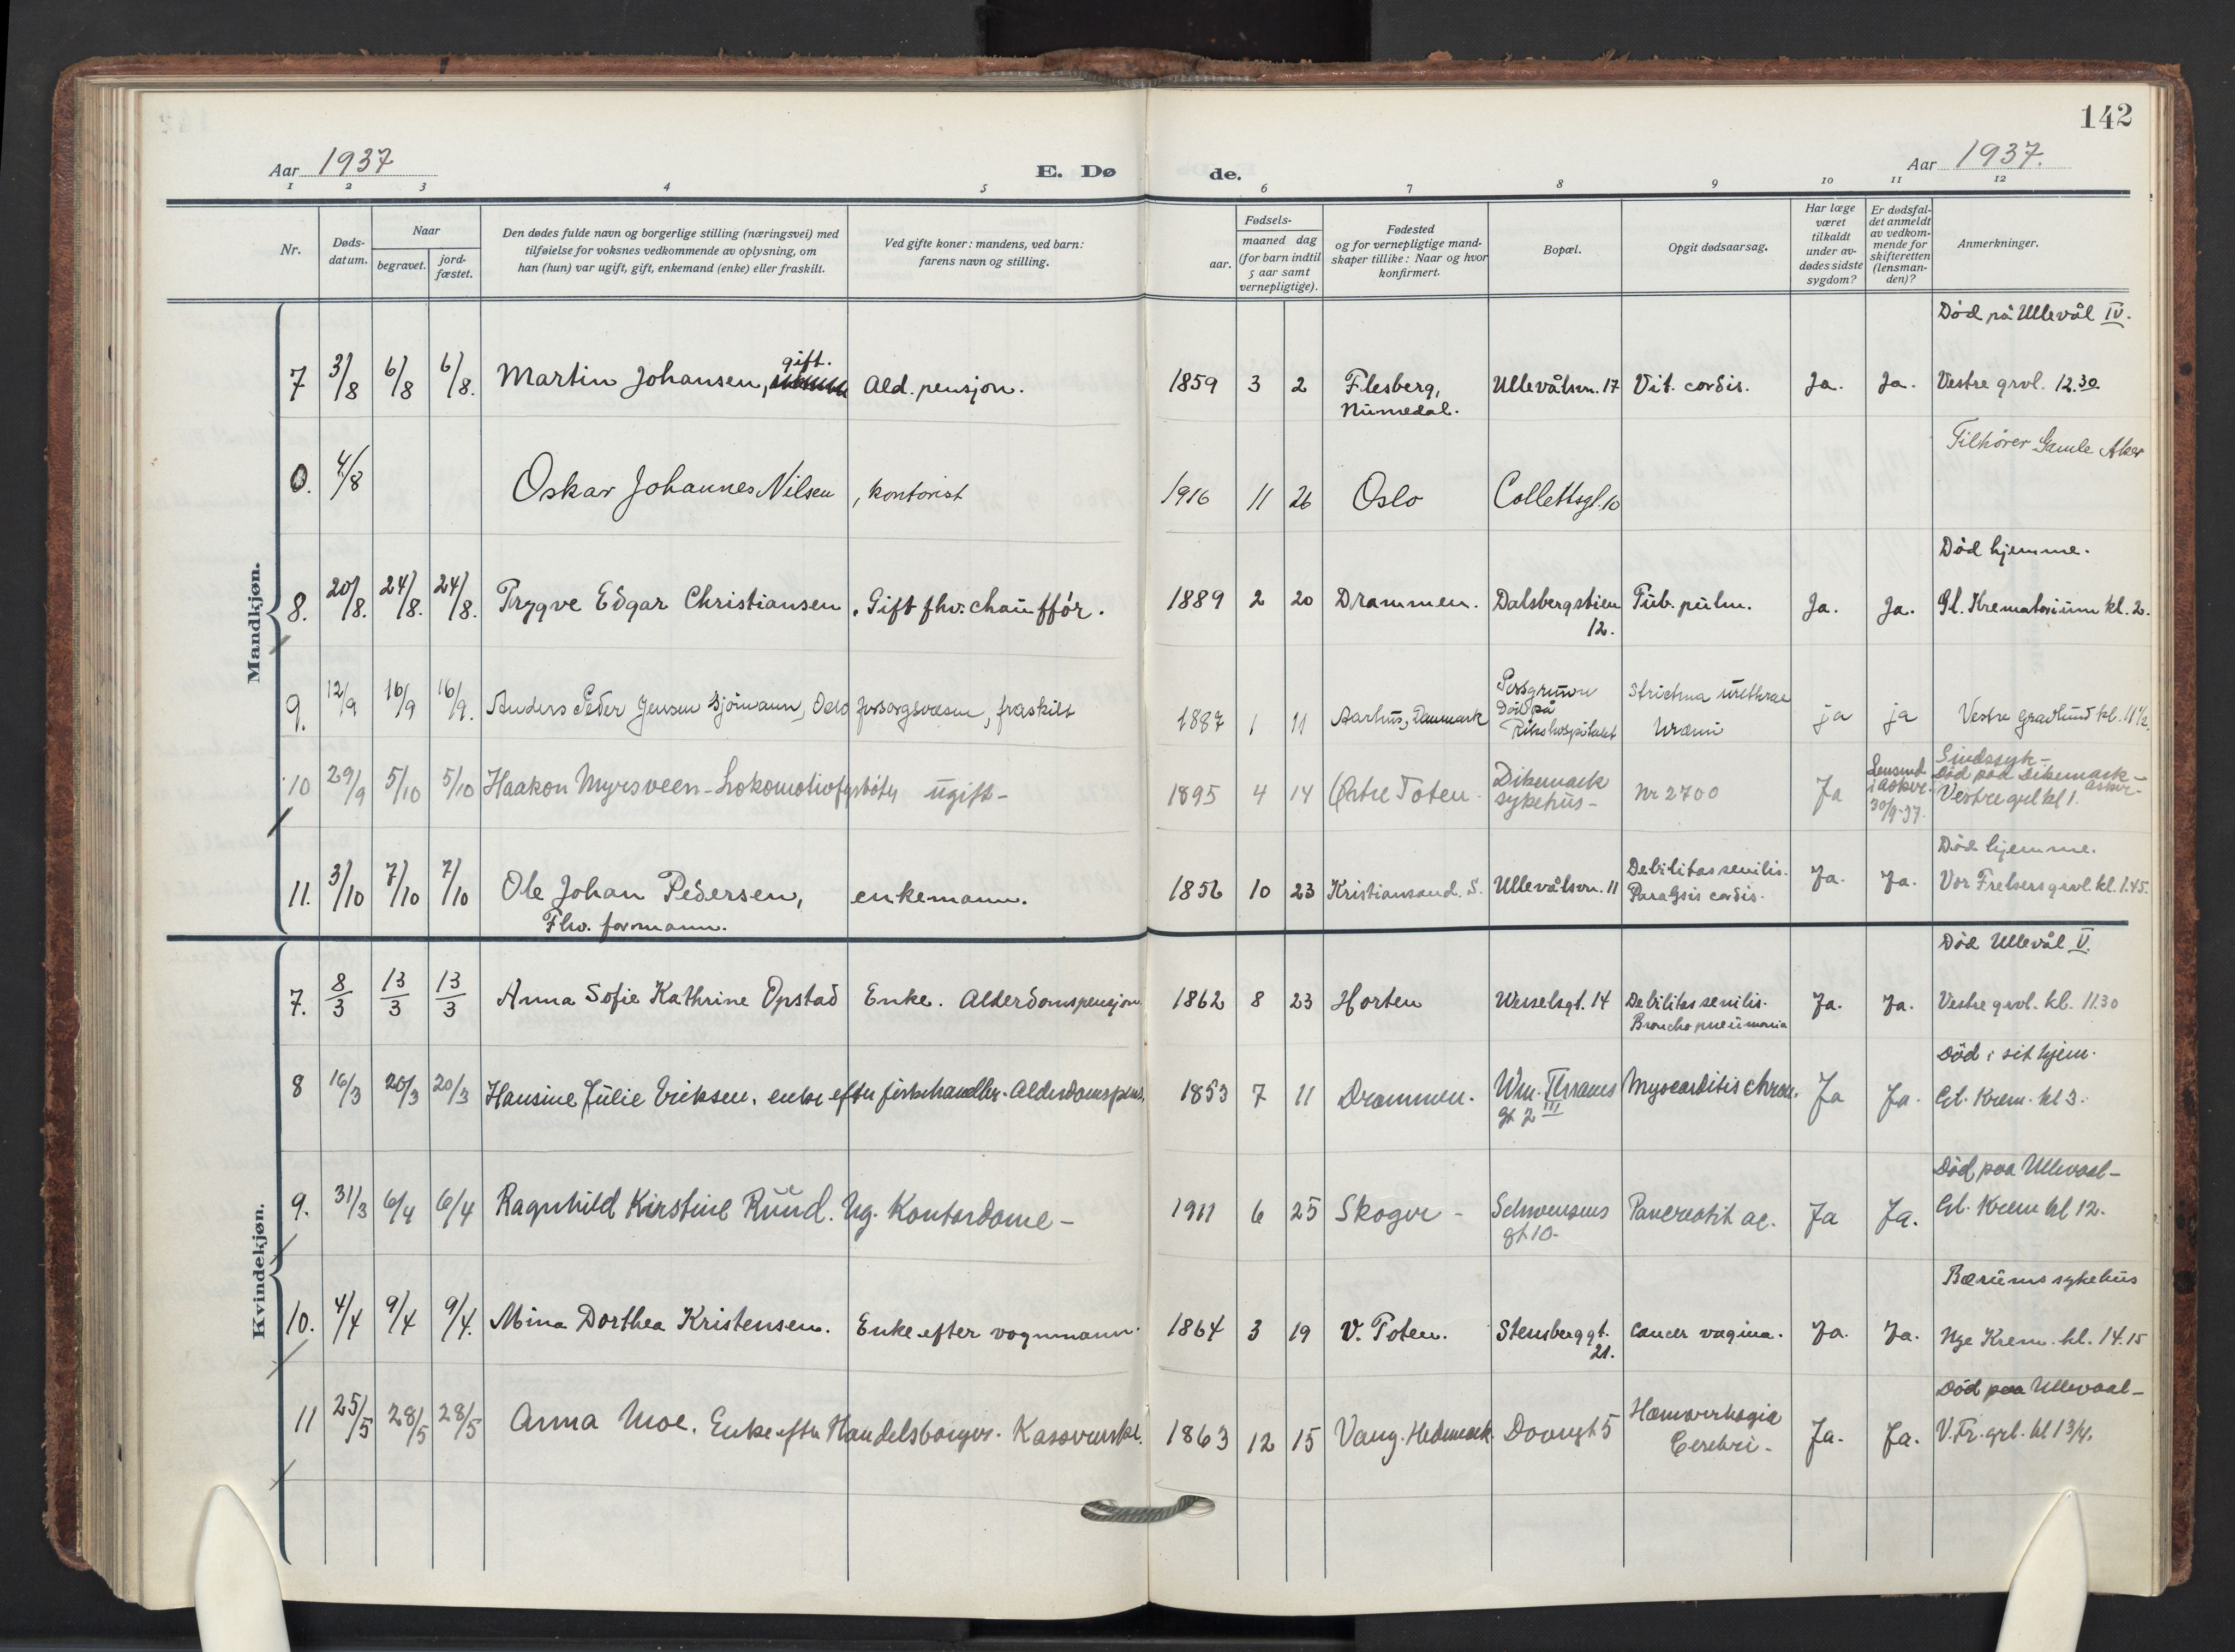 142
Aar 1937 E. Dø de. Aar 1937.
1 2 3 4 5 6 7 8 9 10 11 12
Nr.
Døds-
datum.
Naar
begravet.
jord-
fæstet.
Den dødes fulde navn og borgerlige stilling (næringsvei) med
tilføielse for voksnes vedkommende av oplysning, om
han (hun) var ugift, gift, enkemand (enke) eller fraskilt.
Ved gifte koner: mandens, ved barn:
farens navn og stilling.
Fødsels-
aar.
maaned dag
(for barn indtil
5 aar samt
vernepligtige).
Fødested
og for vernepligtige mand-
skaper tillike: Naar og hvor
konfirmert.
Bopæl.
Opgit dødsaarsag.
Har læge
været
tilkaldt
under av-
dødes sidste
sygdom?
Er dødsfal-
det anmeldt
av vedkom-
mende for
skifteretten
(lensman-
den)?
Anmerkninger.
Mandkjøn.
Død på Ullevål IV.
gift.
7 3/8 6/8 6/8. Martin Johansen, Ald. pensjon. 1859 3 2 Flesberg, Ullevålsvn. 17 Vit. cordis. Ja. Ja. Vestre grvl. 12.30
Numedal.
Tilhører Gamle Aker
0. 4/8 Oskar Johannes Nilsen, kontorist 1916 11 26 Oslo Collettsgt. 10
Død hjemme.
8. 20/8. 24/8. 24/8. Trygve Edgar Christiansen. Gift fhv. chauffør. 1889 2 20 Drammen. Dalsbergstien Tub. pulm. Ja. Ja. Gl. Krematorium kl. 2.
12.
9. 12/9 16/9 16/9. Anders Peder Jensen sjømann, Oslo forsorgsvesen, fraskilt 1887 1 11 Aarhus, Danmark Død på Strictura urethrae ja ja Vestre gravlund kl. 11½
Rikshospitalet Uræmi
Sindssyk-
10 29/9 5/10 5/10 Haakon Myrsveen - Lokomotivfyrbøter ugift- 1895 4 14 Østre Toten. Dikemark Nr 2700 Ja Lensmd. Død paa Dikemark - Asker-
sykehus- i Asker. Vestre grl kl 1.
30/9-37.
Død hjemme.
11. 3/10 7/10 7/10 Ole Johan Pedersen, enkemann. 1856 10 23 Kristiansand. S. Ullevålsvn. 11 Debilitas senilis. Ja. Ja. Vor Frelsers grvl. kl. 1.45.
Fhv. formann. Paralysis cordis.
Kvindekjøn.
Død Ullevål V.
7. 8/3 13/3 13/3 Anna Sofie Kathrine Opstad Enke. Alderdomspensjon. 1862 8 23 Horten Wesselsgt. 14 Debilitas senilis. Ja. Ja. Vestre grvl. kl. 11.30
Bronchopneumonia
Død i sit hjem.
8 16/3 20/3 20/3 Hansine Julie Eriksen, enke efter fiskehandler. Alderdomspens. 1853 7 11 Drammen. Wm. Thranes Myocarditis chron. Ja Ja. Gl. Krem. kl 3.
gt 2 III
Død paa Ullevaal-
9. 31/3 6/4 6/4 Ragnhild Kirstine Ruud. Ug. Kontordame - 1911 6 25 Skoger - Schwensens Pancreatit ac. Ja Ja. Gl. Krem kl 12.
gt 10-
Bærums sykehus
10. 4/4 9/4 9/4. Mina Dorthea Kristensen. Enke efter vognmann. 1864 3 19 V. Toten. Stensberggt. Cancer vagina. Ja. Ja. Nye Krem. kl. 14.15
21.
Død paa Ullevaal-
11 25/5 28/5 28/5 Anna Moe. Enke efter Handelsborger. 1863 12 15 Vang. Hedemark. Dovregt 5 Hæmorrhagia Ja. Ja. V. Fr. grl. kl 1 3/4.
Cerebri-